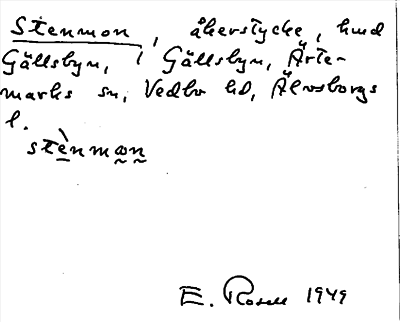 Stenmon, åkerstycke, hmd
Gällsbyn, Gällsbyn, Ärte-
marks sn, Vedbo hd, Älvsborgs
l.
stènmon
E. Rosell 1949